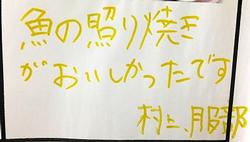 魚の照り焼き
がおいしかったです
村上、服部